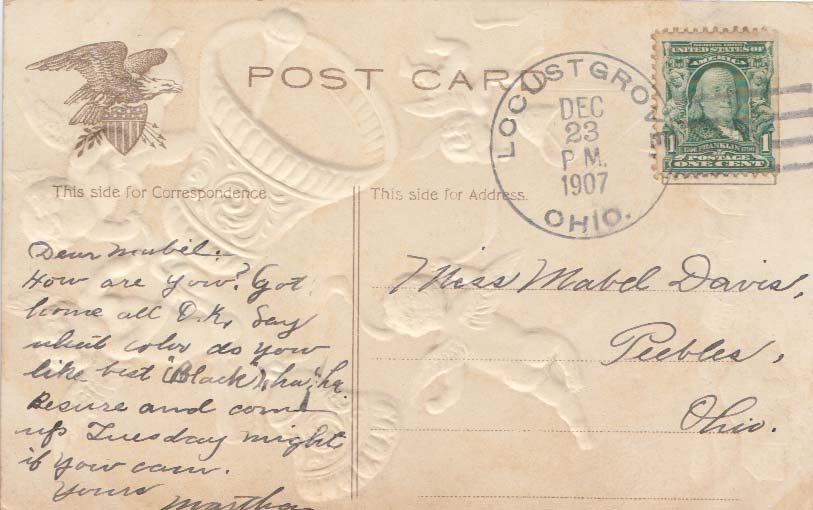 POST CARD
LOCUST GROVE
DEC
23
P M.
1907
OHIO.
SERIES 1902
UNITED STATES OF
AMERICA
1 FRANKLIN 1
POSTAGE
ONE CENT
This side for Correspondence
This side for Address.
Dear Mabel:
How are you? Got
home all O.K. Say
what color do you
like best "(Black)", ha, ha.
Besure and come
up Tuesday night
if you can.
Yours
Martha
Miss Mabel Davis,
Peebles,
Ohio.